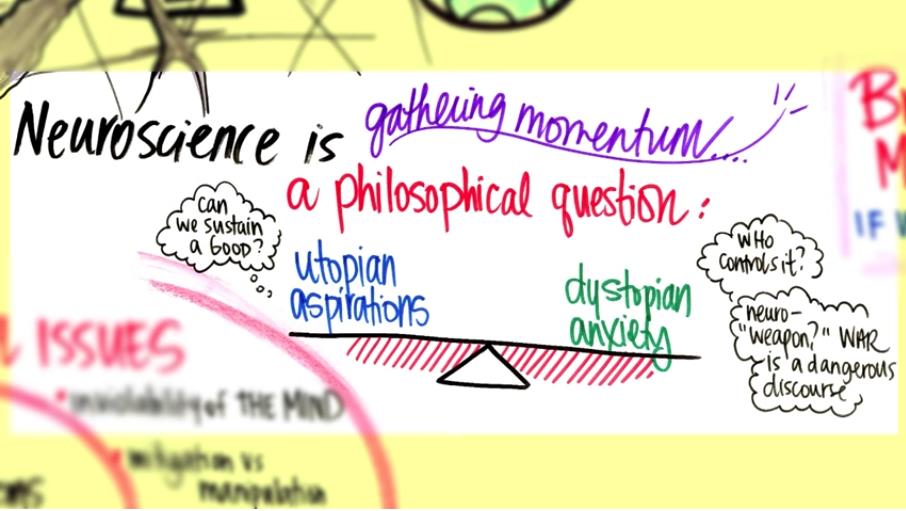 Neuroscience is gathering momentum....
a philosophical question:
can
we sustain
a GOOD?
utopian
aspirations
dystopian
anxiety
WHO
controls it?
neuro-
"weapon?" WAR
is a dangerous
discourse
ISSUES
• inviolability of THE MIND
• mitigation vs
manipulation
IF